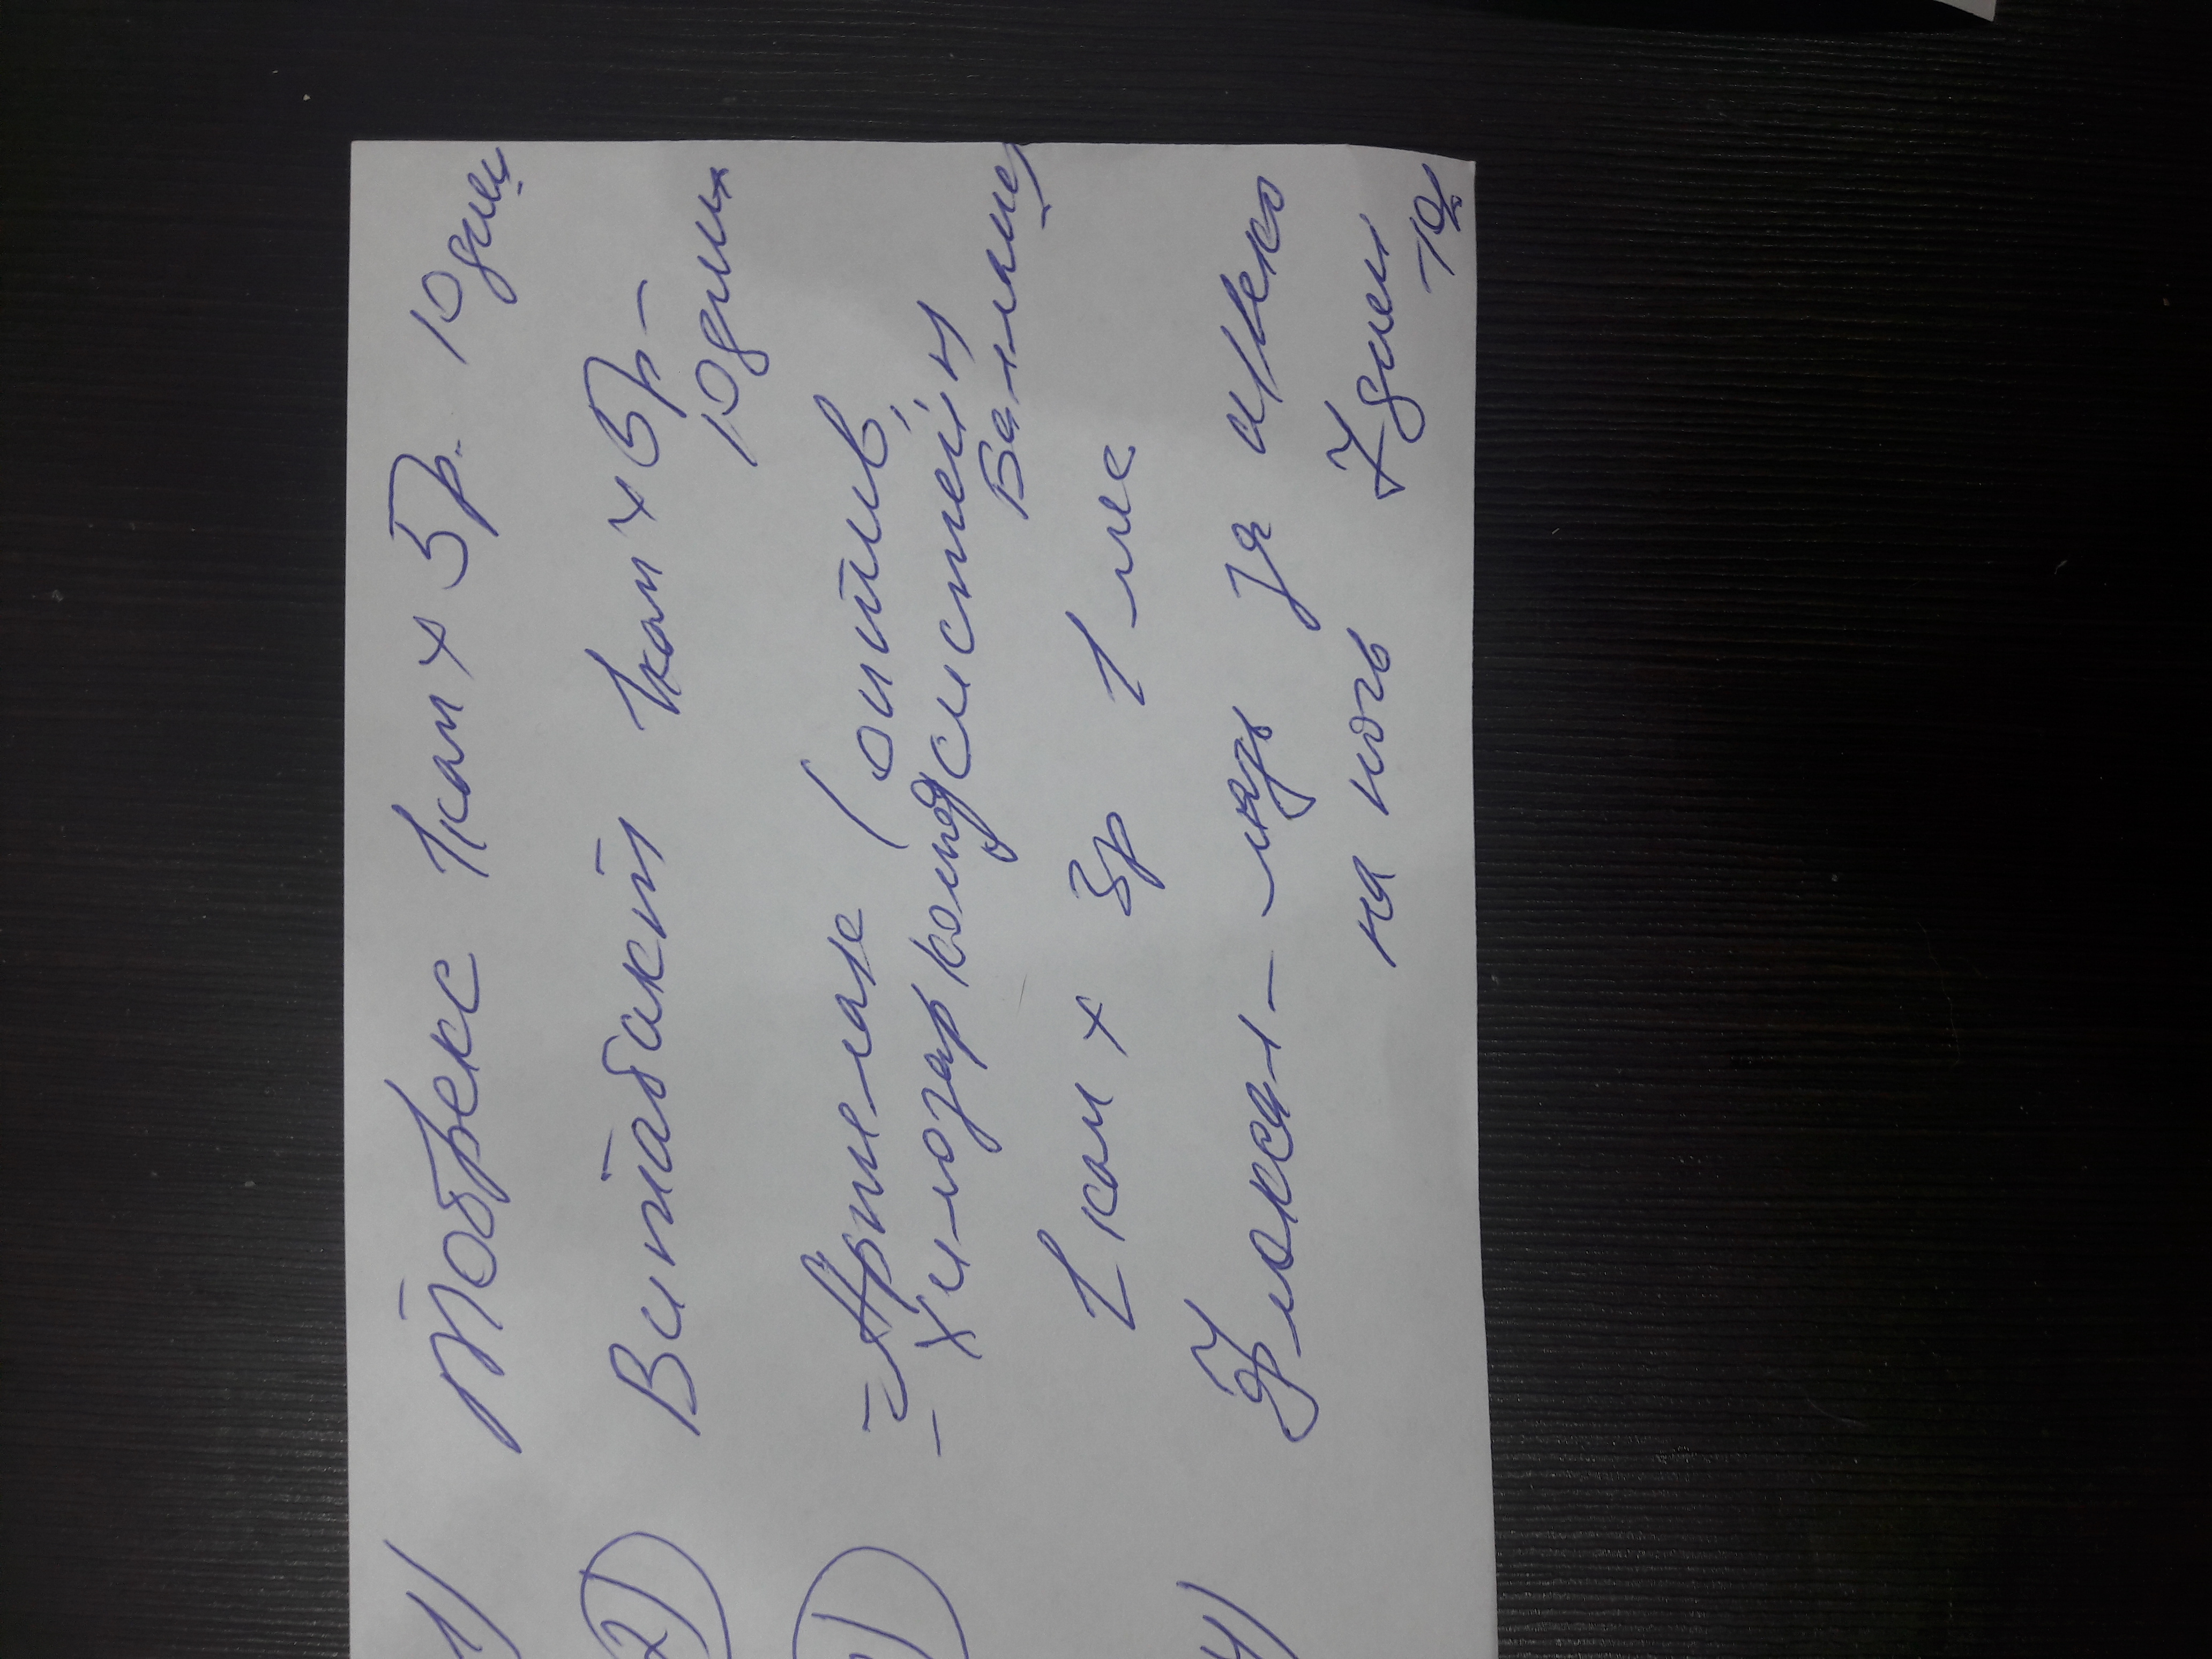 1) Тобрекс 1кап х 5р. 10 дней
2) Витабакт 1кап х 5р -
10 дней
- Артелак (оптив,
- Хилозар комод систейн
Баланс)
1 кап х 3р 1 мес
4) Флоксал - мазь за веко
на ночь 7 дней